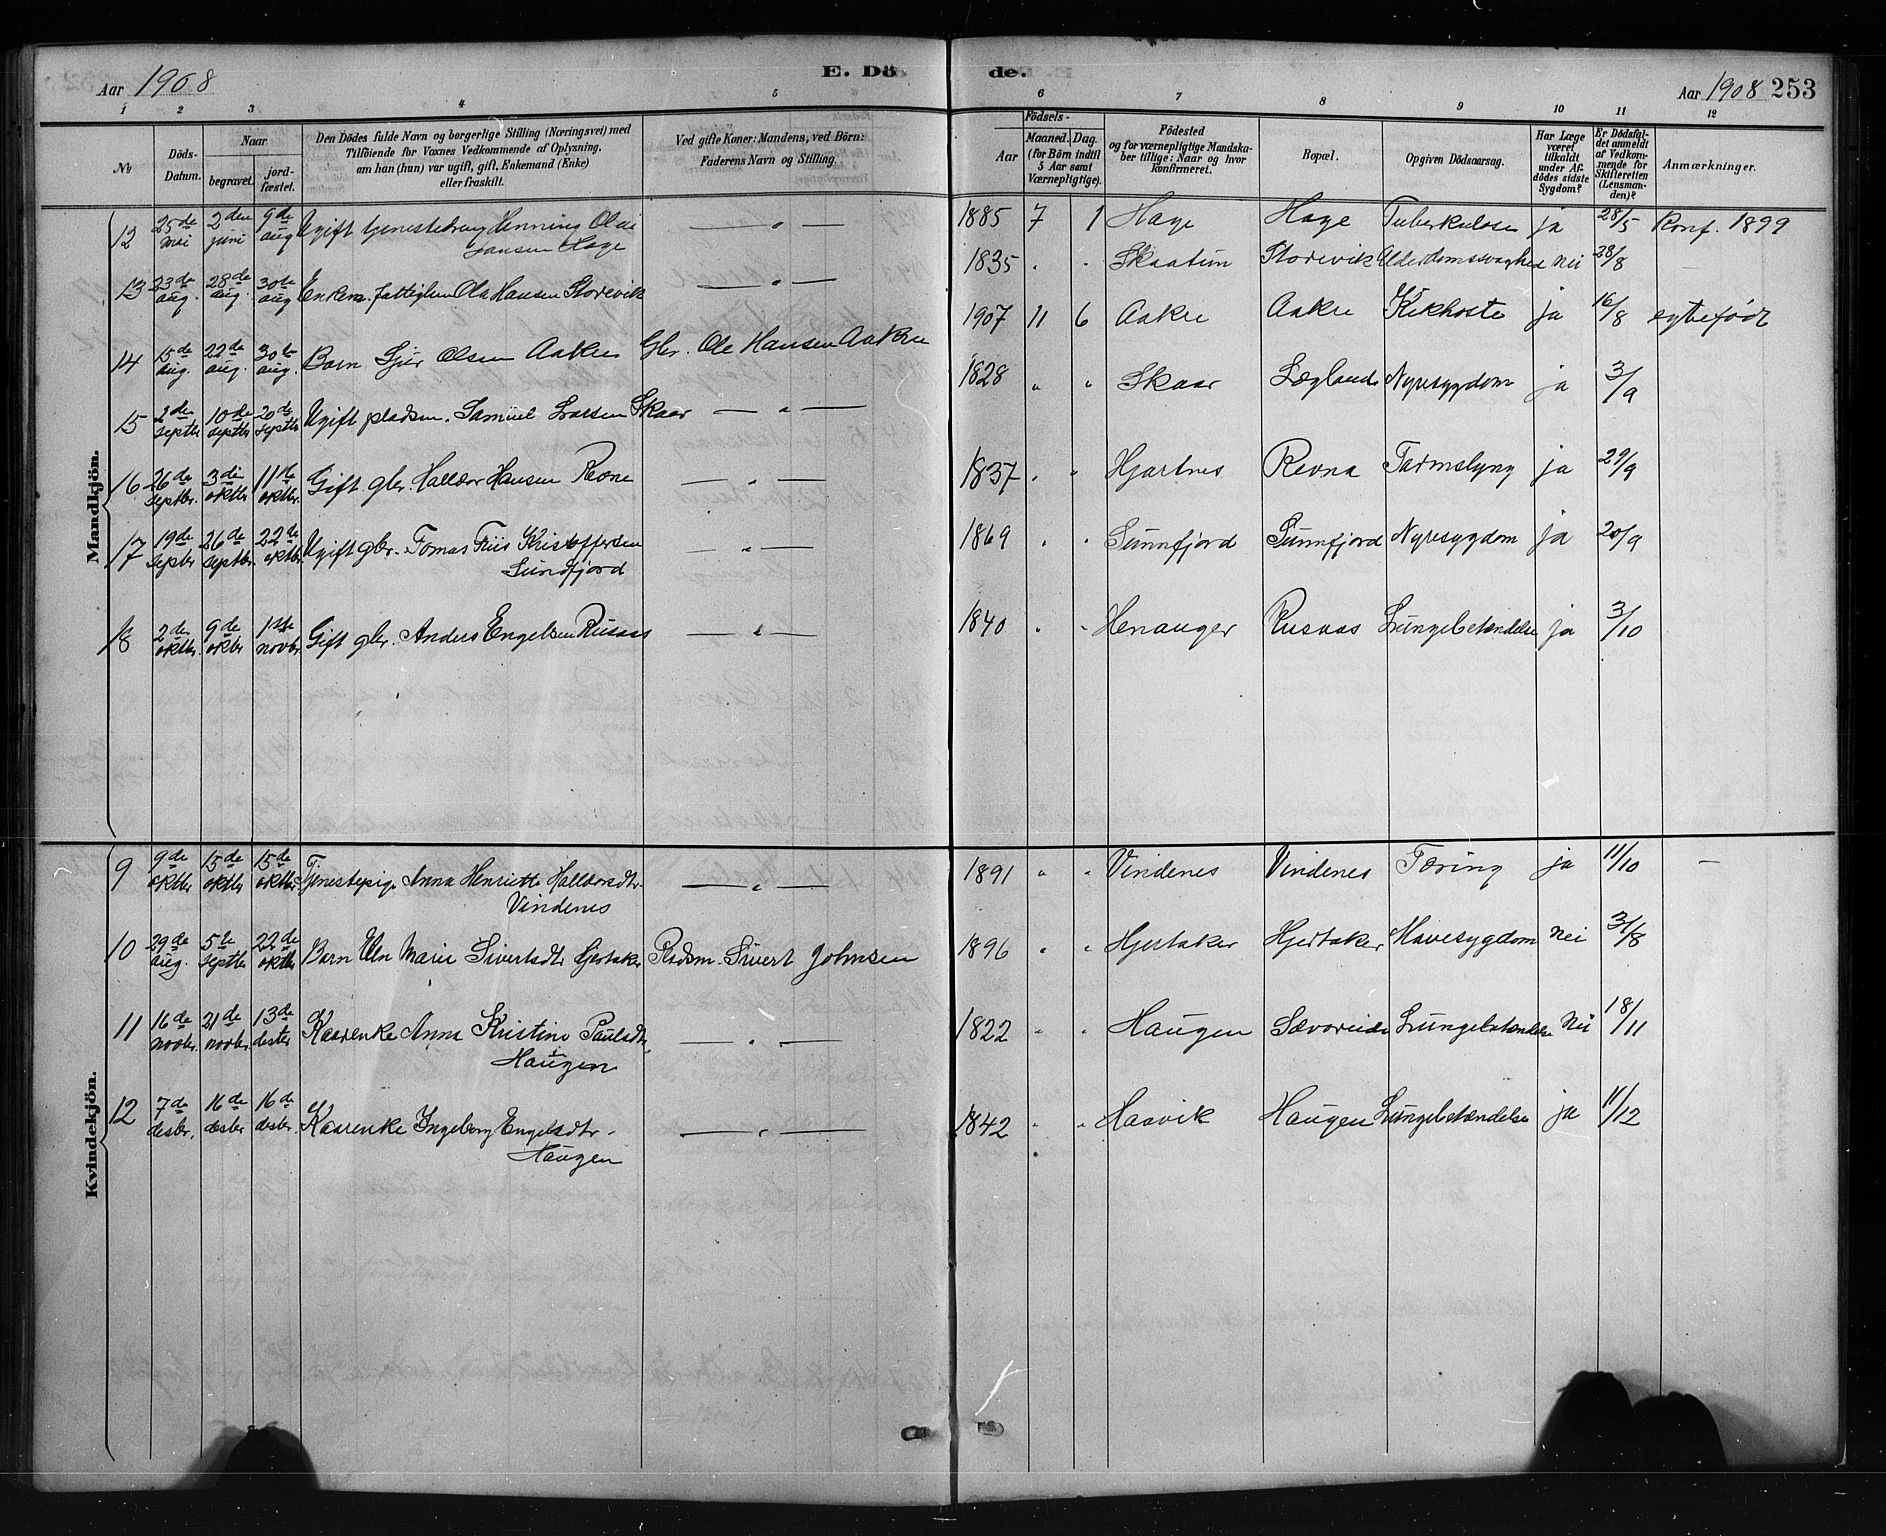 Aar 1908
E. Döde.
Aar 1908 253
1 2 3 4 5 6 7 8 9 10 11 12
No
Döds-Datum.
Naar
begravet.
jordfæstet.
Den Dödes fulde Navn og borgerlige Stilling (Næringsvei) med
Tilföiende for Voxnes Vedkommende af Oplysning,
om han (hun) var ugift, gift, Enkemand (Enke)
eller fraskilt.
Ved gifte Koner: Mandens, ved Börn:
Faderens Navn og Stilling.
Födsels-
Aar
Maaned. Dag.
(for Börn indtil
5 Aar samt
Værnepligtige).
Födested
og for værnepligtige Mandska-
ber tillige: Naar og hvor
konfirmeret.
Bopæl.
Opgiven Dödsaarsag.
Har Læge
været
tilkaldt
under Af-
dödes sidste
Sygdom?
Er Dödsfal-
det anmeldt
af Vedkom-
mende for
Skifteretten
(Lensman-
den)?
Anmærkninger.
Mandkjön.
12 25de mai 2den juni 9de aug Ugift tjenestedreng Henning Olai Jansen Hage — " — 1885 7 1 Hage Hage Tuberkulose ja 28/5 Konf. 1899
13 23de aug. 28de aug. 30te aug Enkem. fattiglem Ola Hansen Storevik — " — 1835 " " Skaatun Storevik Alderdomssvaghed nei 28/8 —
14 15de aug. 22de aug. 30te aug. Barn Sjur Olsen Aakre Gbr. Ole Hansen Aakre 1907 11 6 Aakre Aakre Kikhoste ja 16/8 egtefødt
15 2de septbr 10de septbr 20de septbr Ugift pladsm. Samuel Larsen Skaar — " — 1828 " " Skaar Lægland Nyresygdom ja 3/9
16 26de septbr. 3die oktbr 11te oktbr. Gift gbr. Halldor Hansen Revne — " — 1837 " " Hjartnes Revna Tarmslyng ja 29/9
17 19de septbr 26de septbr. 22de oktbr Ugift gbr. Tomas Friis Kristoffersen Sundfjord — " — 1869 " " Sunnfjord Sunnfjord Nyresygdom ja 20/9
18 2de oktbr. 9de oktbr 1ste novbr. Gift gbr. Anders Engelsen Rusaas — " — 1840 " " Henanger Rusaas Lungebetændelse ja 3/10
Kvindekjön.
9 9de oktbr 15de oktbr 15de oktbr Tjenestepige Anna Henriette Halldorsdtr. Vindenes — " — 1891 " " Vindenes Vindenes Tæring ja 11/10 —
10 29de aug. 5te septbr 22de oktbr Barn Marie Sivertsdtr Hjertaker Pladsm. Sivert Johnsen 1896 " " Hjertaker Hjertaker Mavesygdom nei 31/8
11 16de novbr. 21de novbr. 13de desbr Kaarenke Anna Kristine Paulsdtr. Haugen — " — 1822 " " Haugen Sævareide Lungebetændelse nei 18/11
12 7de desbr. 16de desbr 16de desbr. Kaarenke Ingeborg Engelsdtr. Haugen — " — 1842 " " Haavik Haugen Lungebetændelse ja 11/12